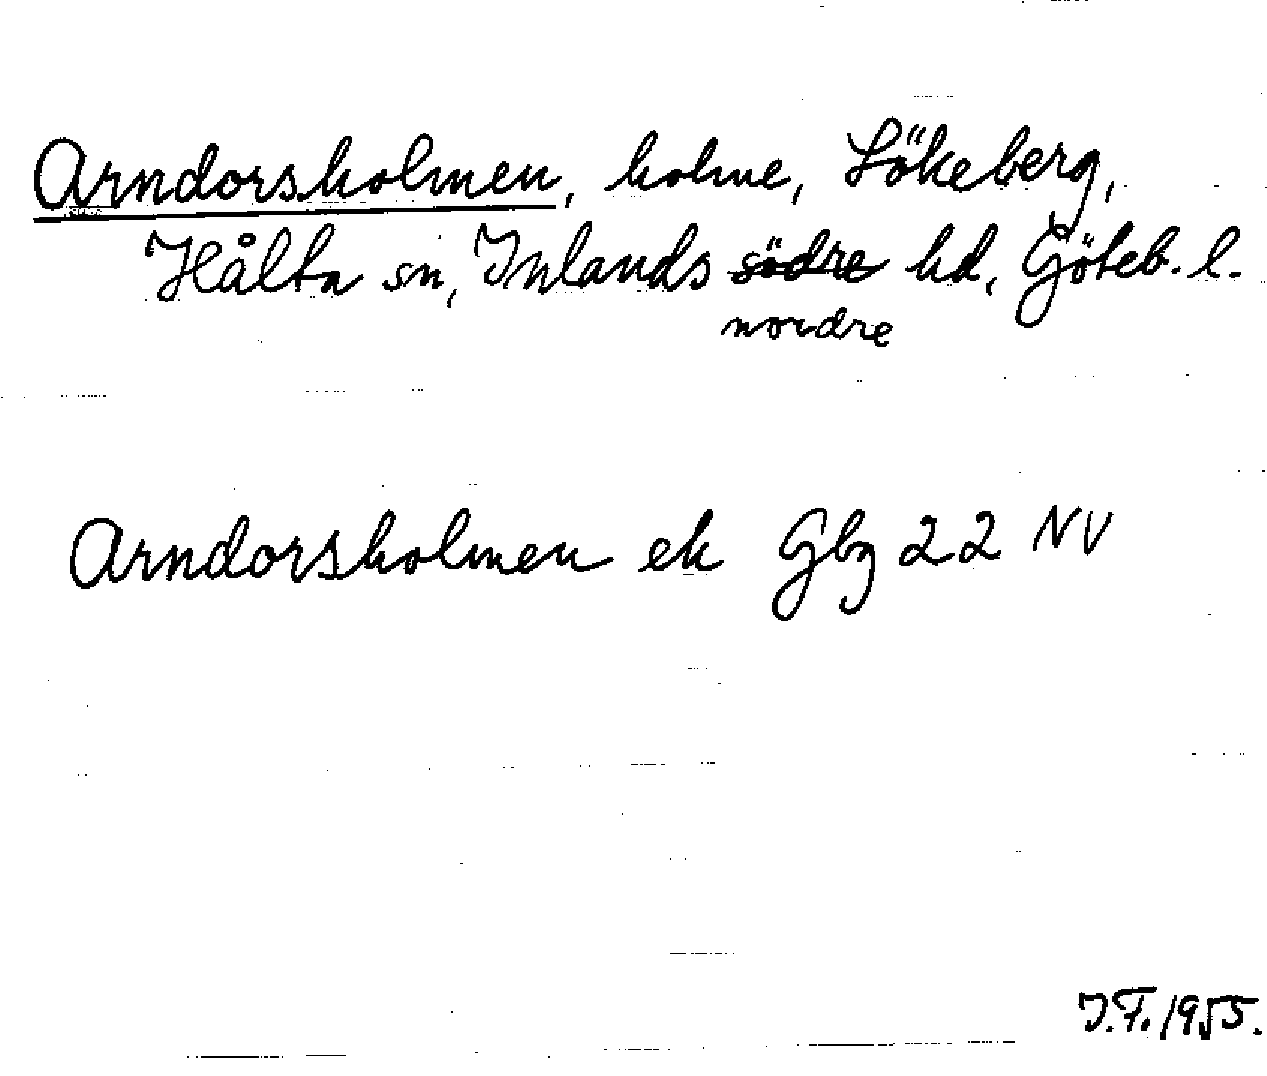 Arndorsholmen, holme, Lökeberg,
Hålta sn, Inlands södre hd, Göteb. l.
nordre
Arndorsholmen ek Gbg 22 NV
I.F. 1955.